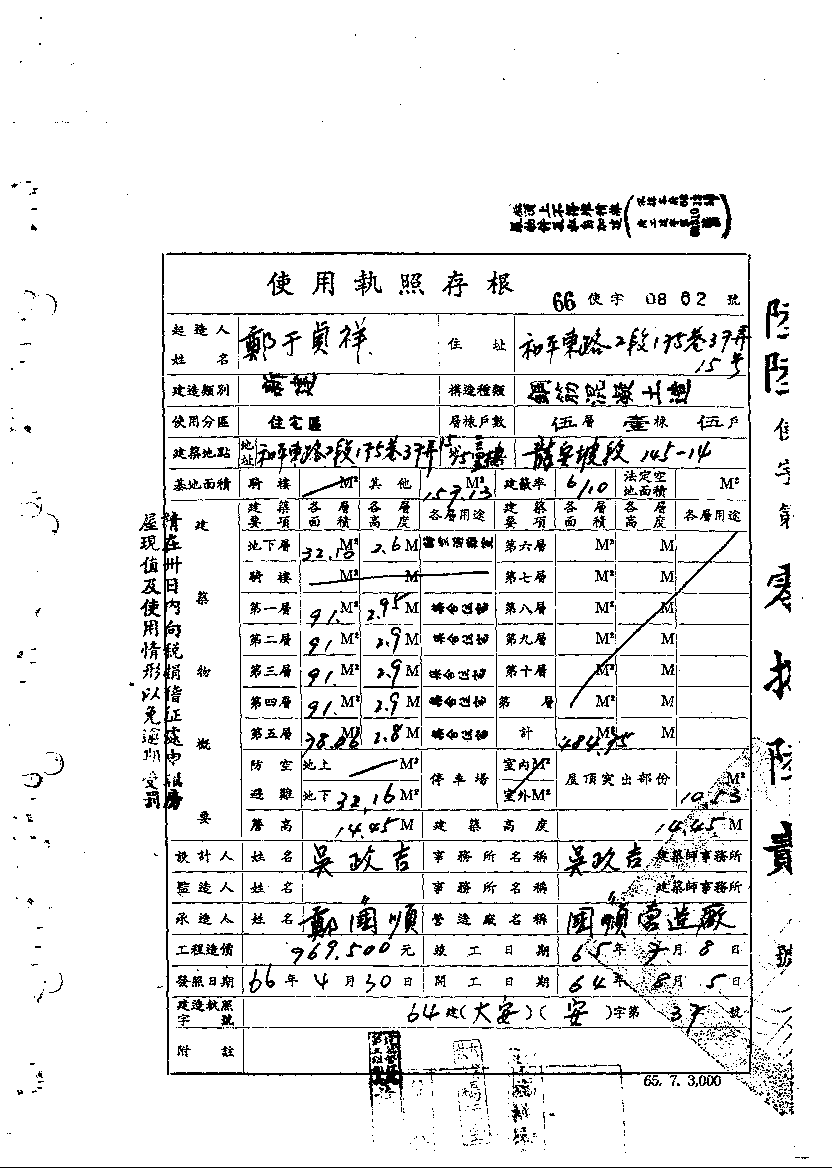 使用執照存根
66 使字 0862 號
起造人姓名 鄭于貞祥 住址 和平東路2段175巷37弄15号
建造類別 新建 構造種類 鋼筋混凝土造
使用分區 住宅區 層棟戶數 伍層 壹棟 伍戶
建築地點 地址 和平東路2段175巷37弄 龍安坡段 145-14
基地面積 騎樓 M² 其他 157.13 M² 建蔽率 6/10 法定空地面積 M²
建築物概要
建築要項 各層面積 各層高度 各層用途 建築要項 各層面積 各層高度 各層用途
地下層 M² 2.6 M 第六層 M² M
騎樓 M² M 第七層 M² M
第一層 91. M² 2.95 M 第八層 M² M
第二層 91 M² 2.9 M 第九層 M² M
第三層 91. M² 2.9 M 第十層 M² M
第四層 91. M² 2.9 M 第 層 M² M
第五層 M² 2.8 M 計 484.95 M² M
防空避難 地上 M² 地下 32.16 M² 停車場 室內M² 室外M² 屋頂突出部份 10.53 M²
簷高 14.45 M 建築高度 14.45 M
設計人 姓名 吳政吉 事務所名稱 吳政吉 建築師事務所
監造人 姓名 〃 事務所名稱 〃 建築師事務所
承造人 姓名 鄭國順 營造廠名稱 國順营造廠
工程造價 969,500 元 竣工日期 65年 月8日
發照日期 66年4月30日 開工日期 64年8月5日
建造執照字號 64建(大安)(安)字第37號
附註
65. 7. 3,000
請在卅日內向稅捐稽征處申報房
屋現值及使用情形以免逾期受罰
陸陸使字第零捌陸貳號